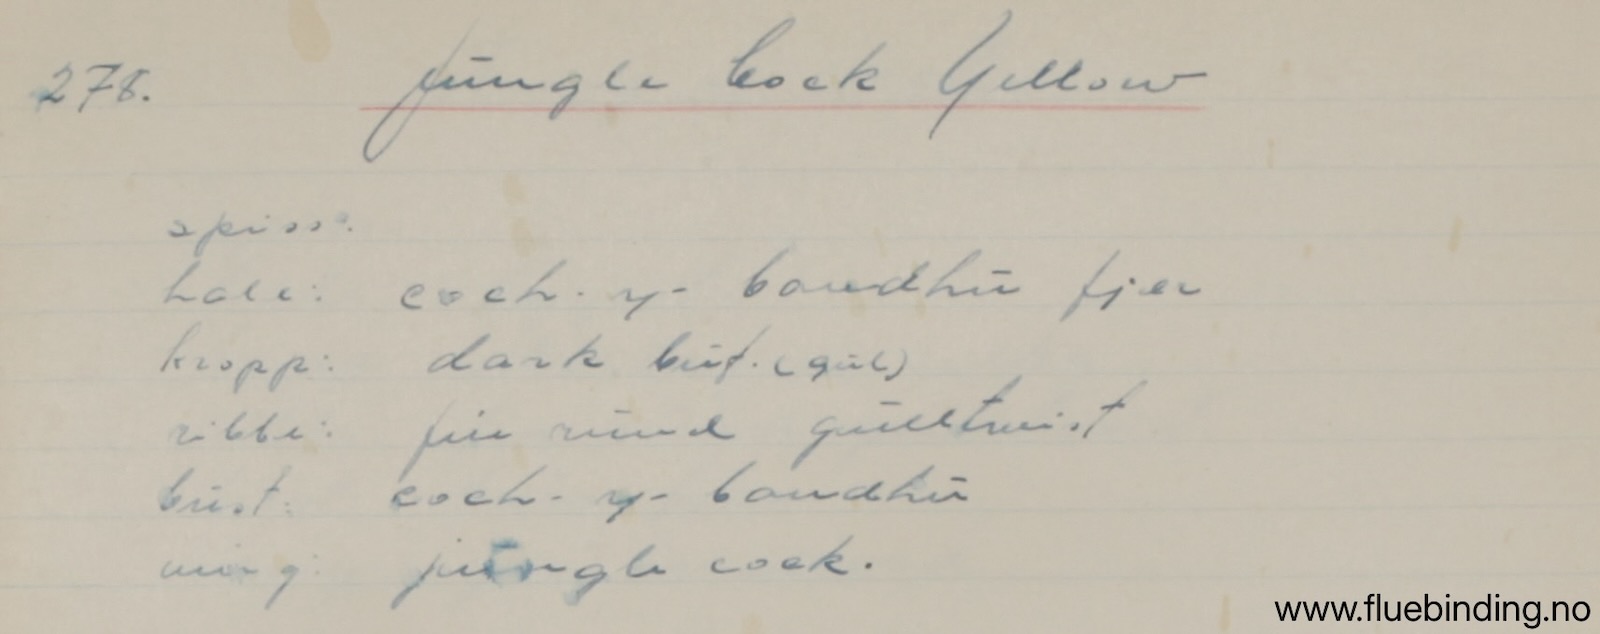 278. Jungle Cock Yellow
spiss:
hale: coch-y-bondhu fjer
kropp: dark buf. (gul)
ribbe: fin rund gulltwist
bust: coch-y-bondhu
wing: jungle cock.
www.fluebinding.no